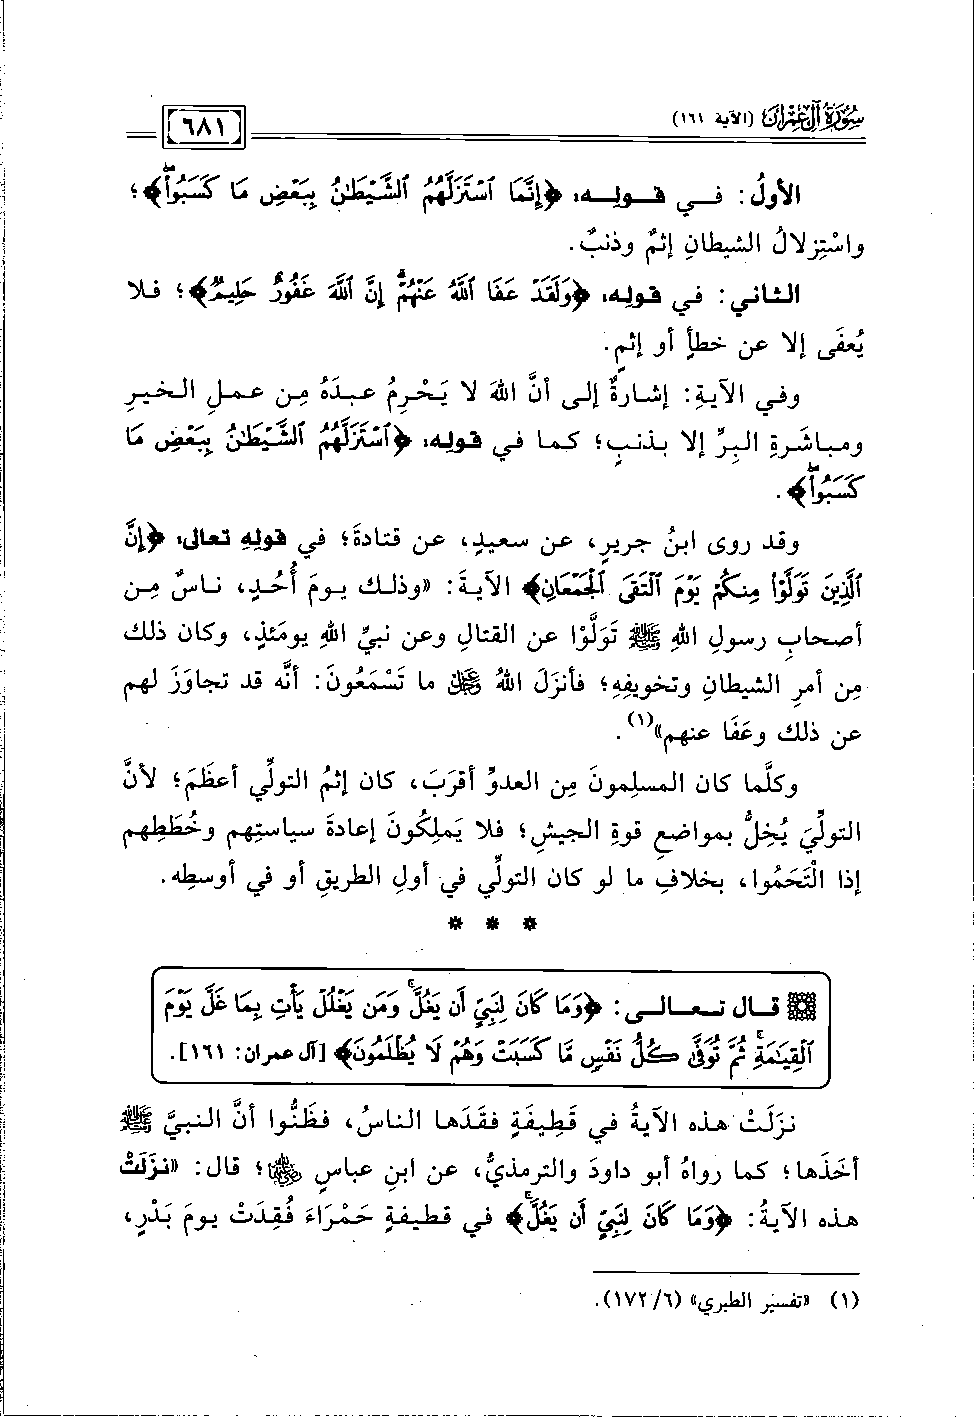 سُورَةُ آلِ عِمْرَانَ (الآية ١٦١)
٦٨١
الأولُ: فـي قـولـه: ﴿إِنَّمَا ٱسْتَزَلَّهُمُ ٱلشَّيْطَٰنُ بِبَعْضِ مَا كَسَبُوا۟ۖ﴾؛
واسْتِزلالُ الشيطانِ إثمٌ وذنبٌ.
الثاني: في قوله: ﴿وَلَقَدْ عَفَا ٱللَّهُ عَنْهُمْۗ إِنَّ ٱللَّهَ غَفُورٌ حَلِيمٌ﴾؛ فلا
يُعفَى إلا عن خطأٍ أو إثمٍ.
وفي الآيةِ: إشارةٌ إلى أنَّ اللهَ لا يَحْرِمُ عبدَهُ مِن عملِ الخيرِ
ومباشَرةِ البِرِّ إلا بذنبٍ؛ كما في قوله: ﴿ٱسْتَزَلَّهُمُ ٱلشَّيْطَٰنُ بِبَعْضِ مَا
كَسَبُوا۟ۖ﴾.
وقد روى ابنُ جريرٍ، عن سعيدٍ، عن قتادةَ؛ في قولِهِ تعالى: ﴿إِنَّ
ٱلَّذِينَ تَوَلَّوْا۟ مِنكُمْ يَوْمَ ٱلْتَقَى ٱلْجَمْعَانِ﴾ الآيةَ: «وذلك يومَ أُحُدٍ، ناسٌ مِن
أصحابِ رسولِ اللهِ ﷺ تَوَلَّوْا عن القتالِ وعن نبيِّ اللهِ يومَئذٍ، وكان ذلك
مِن أمرِ الشيطانِ وتخويفِهِ؛ فأنزَلَ اللهُ ﷻ ما تَسْمَعُونَ: أنَّه قد تجاوَزَ لهم
عن ذلك وعَفَا عنهم»(١).
وكلَّما كان المسلِمونَ مِن العدوِّ أقرَبَ، كان إثمُ التولِّي أعظَمَ؛ لأنَّ
التولِّيَ يُخِلُّ بمواضعِ قوةِ الجيشِ؛ فلا يَملِكُونَ إعادةَ سياستِهم وخُطَطِهم
إذا الْتَحَمُوا، بخلافِ ما لو كان التولِّي في أولِ الطريقِ أو في أوسطِه.
* * *
قـال تـعـالـى: ﴿وَمَا كَانَ لِنَبِىٍّ أَن يَغُلَّۚ وَمَن يَغْلُلْ يَأْتِ بِمَا غَلَّ يَوْمَ
ٱلْقِيَٰمَةِۚ ثُمَّ تُوَفَّىٰ كُلُّ نَفْسٍ مَّا كَسَبَتْ وَهُمْ لَا يُظْلَمُونَ﴾ [آل عمران: ١٦١].
نزَلَتْ هذه الآيةُ في قَطِيفةٍ فقَدَها الناسُ، فظَنُّوا أنَّ النبيَّ ﷺ
أخَذَها؛ كما رواهُ أبو داودَ والترمذيُّ، عن ابنِ عباسٍ ﵄؛ قال: «نزَلَتْ
هذه الآيةُ: ﴿وَمَا كَانَ لِنَبِىٍّ أَن يَغُلَّۚ﴾ في قطيفةٍ حَمْرَاءَ فُقِدَتْ يومَ بَدْرٍ،
(١) «تفسير الطبري» (٦/ ١٧٢).